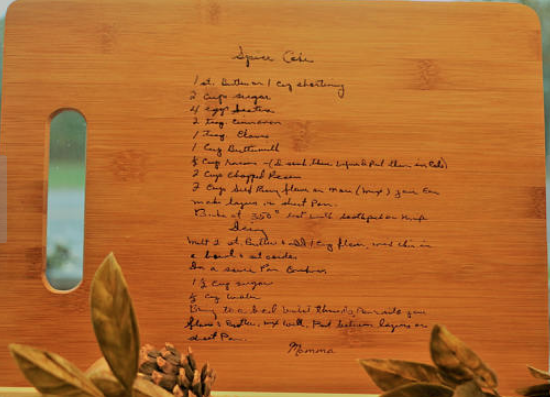 Spice Cake
1 st. Butter or 1 cup shortening
2 cups sugar
4 eggs beaten
2 tsp. cinnamon
1 tsp. Cloves
1 Cup Buttermilk
½ Cup raisins - (I soak these &
2 Cups Chopped Pecans
2 Cups Self Rising flour or more (mix) you can
make layers or sheet Pan.
Bake at 350° test with toothpick or knife
Icing
Melt 2 st. Butter & add 1 cup flour, mix this in
a bowl & set aside.
In a sauce Pan Combine
1 ½ cup sugar
½ cup water
Bring to a boil until Pour into your
flour & Butter, mix well. Put between layers or
sheet Pan.
Momma